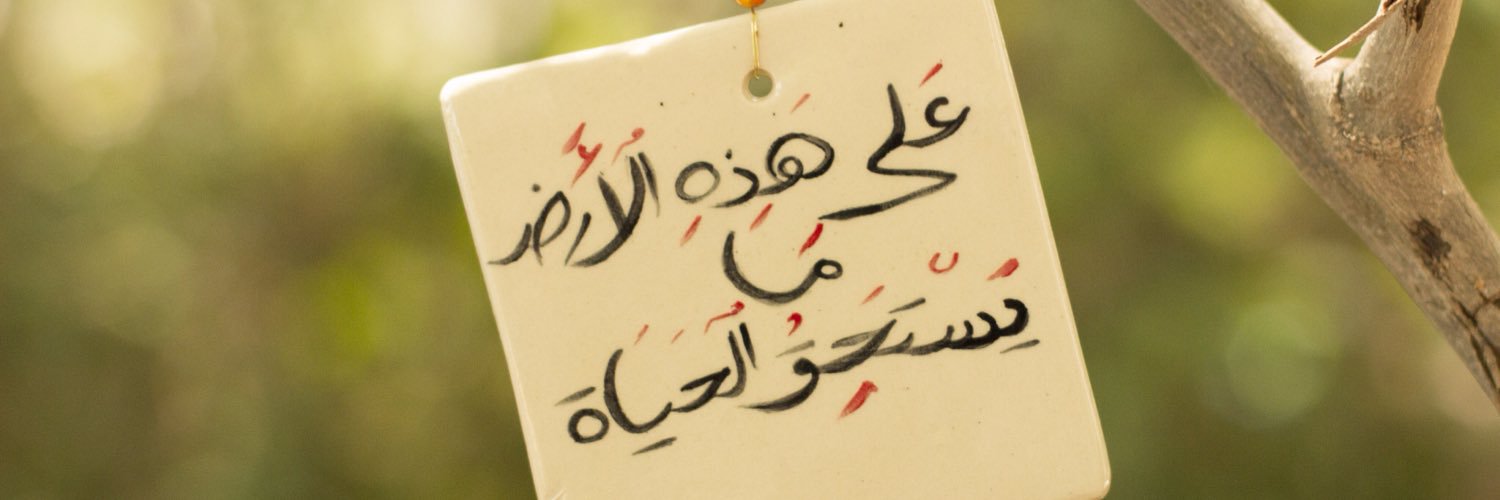 عَلَى هَذِهِ الْأَرْضِ
مَا
يَسْتَحِقُّ الْحَيَاةَ